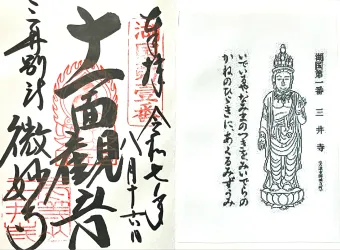 奉拝 令和七年
八月十六日
十一面観音
三井別所 微妙寺
湖国第一番 三井寺
いでいるやなみまのつきをみいでらの
かねのひびきにあくるみずうみ